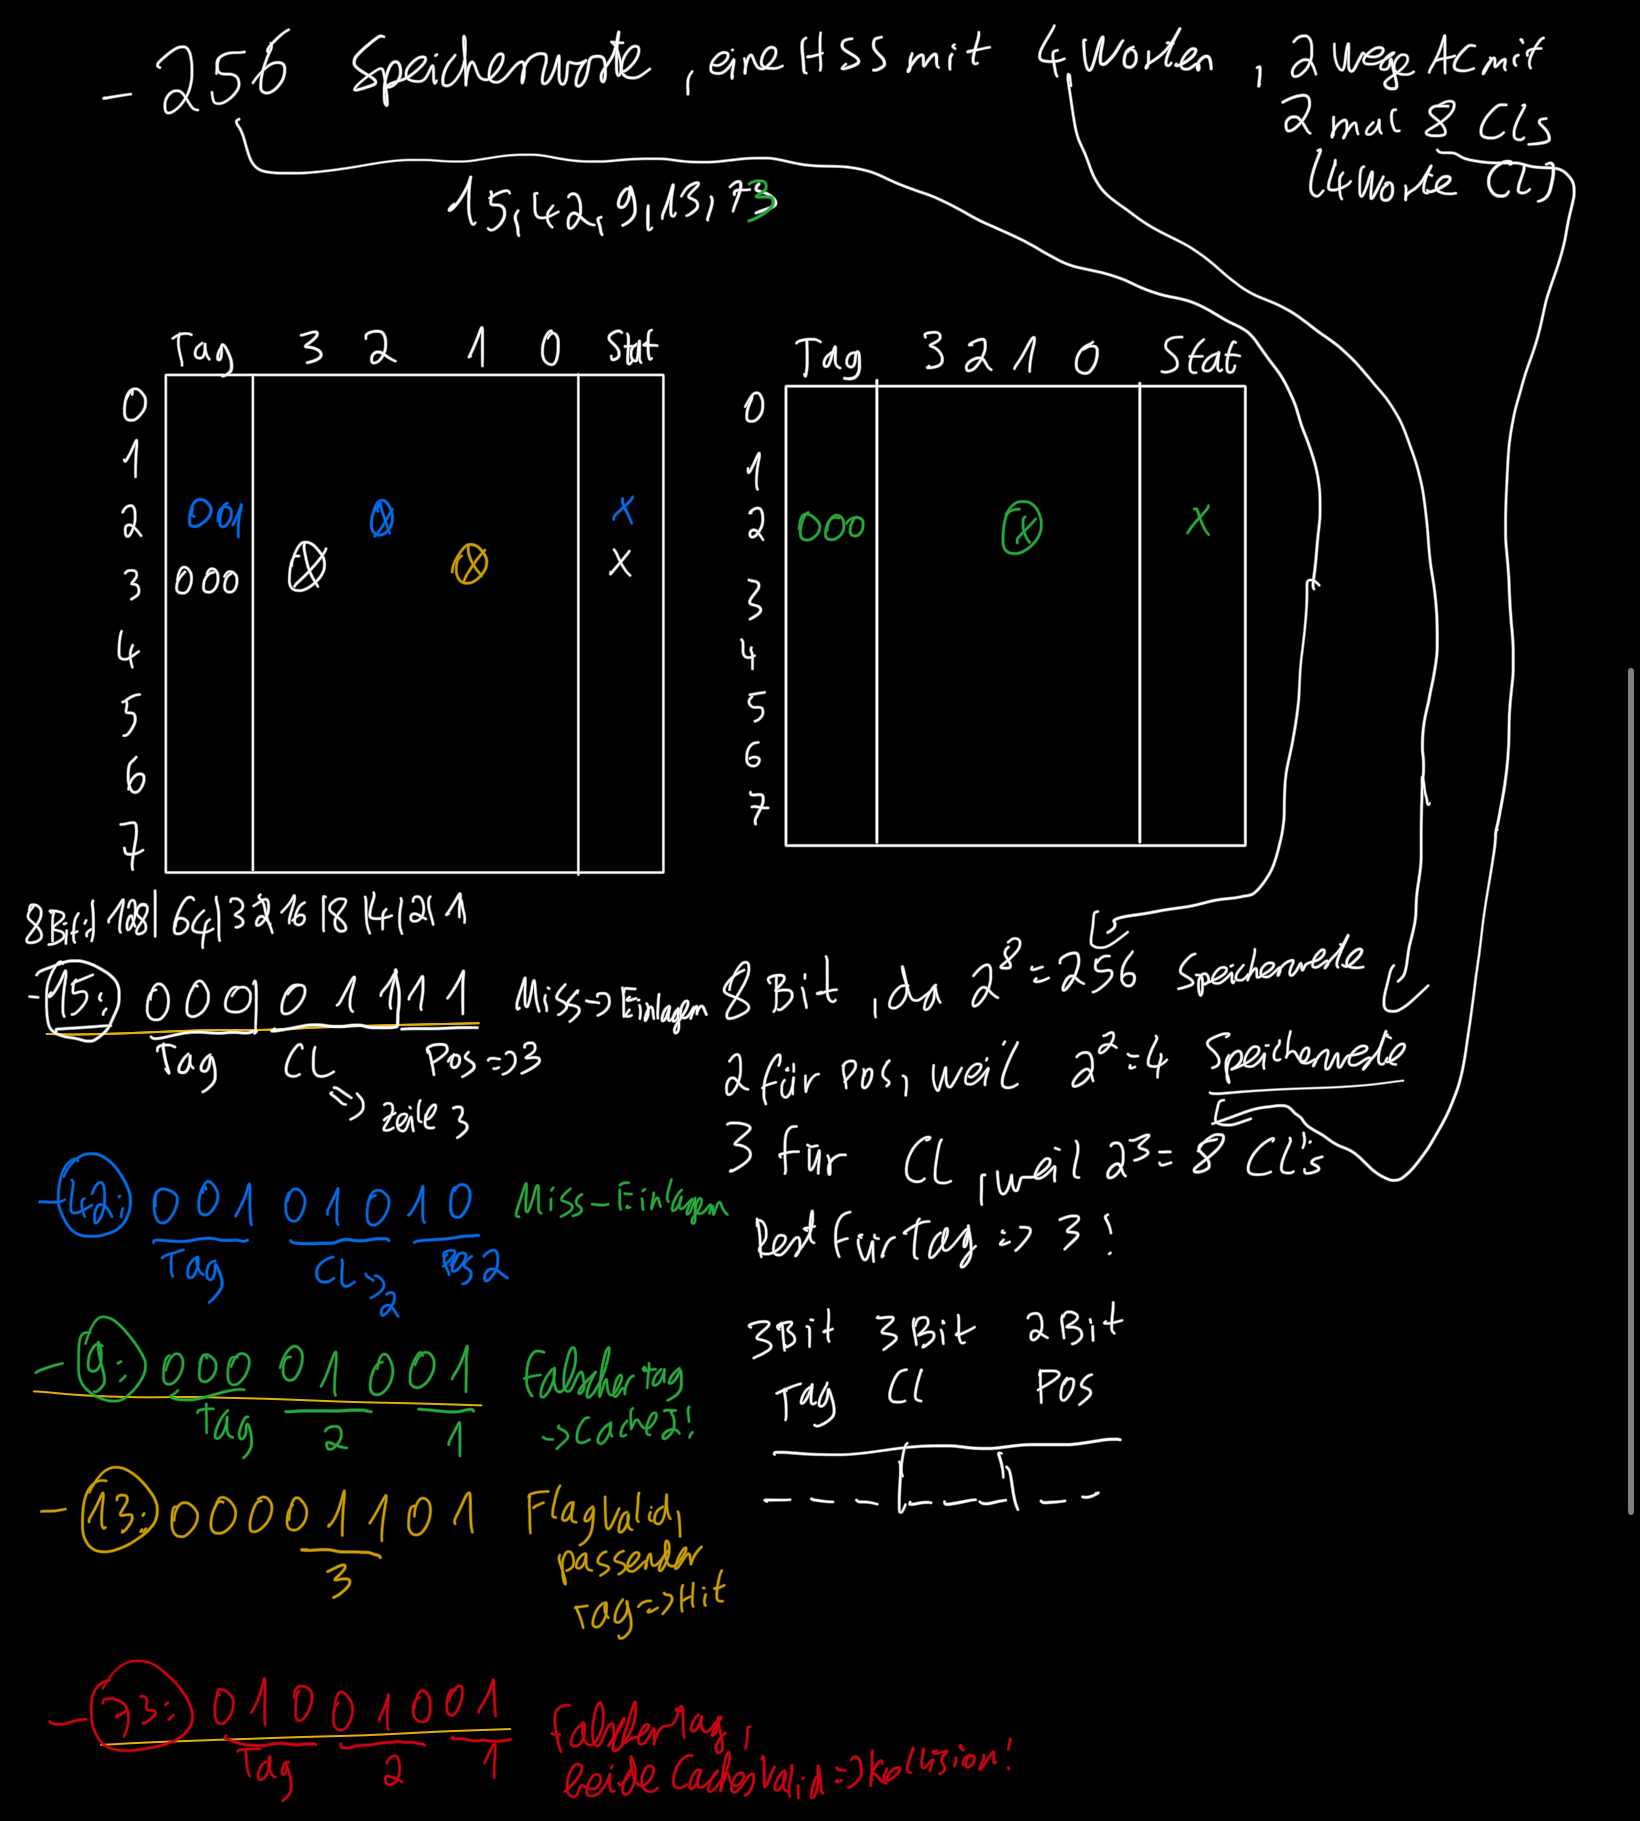 - 256 Speicherworte, eine HSS mit 4 Worten, 2 Wege AC mit
2 mal 8 CLs
(4 Worte CL)
15, 42, 9, 13, 73
Tag 3 2 1 0 Stat
0
1
2 001 X X
3 000 X X X
4
5
6
7
Tag 3 2 1 0 Stat
0
1
2 000 X X
3
4
5
6
7
8Bit:| 128| 64| 32 16 |8 |4 |2| 1
- 15: 000|011|11 Miss => Einlagern
Tag CL Pos => 3
=> Zeile 3
- 42: 001 010 10 Miss - Einlagern
Tag CL => 2 Pos 2
- 9: 000 010 01 Falscher tag
-> Cache 2!
Tag 2 1
- 13: 00001101 Flag Valid,
passender
Tag => Hit
3
- 73: 010 010 01 Falscher tag,
beide Caches Valid => Kollision!
Tag 2 1
8 Bit, da 2^8 = 256 Speicherworte
2 für Pos, weil 2^2 = 4 Speicherworte
3 für CL, weil 2^3 = 8 CL's
Rest für Tag => 3!
3Bit 3Bit 2Bit
Tag Cl Pos
_ _ _ | _ _ _ | _ _